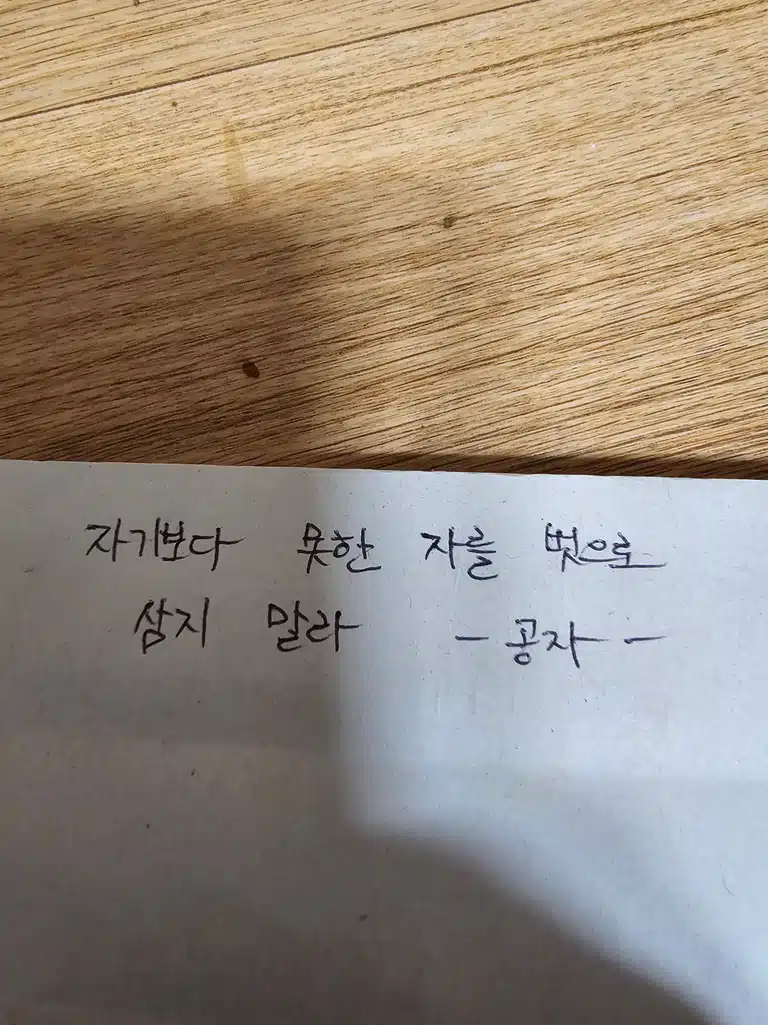 자기보다 못한 자를 벗으로
삼지 말라 - 공자 -